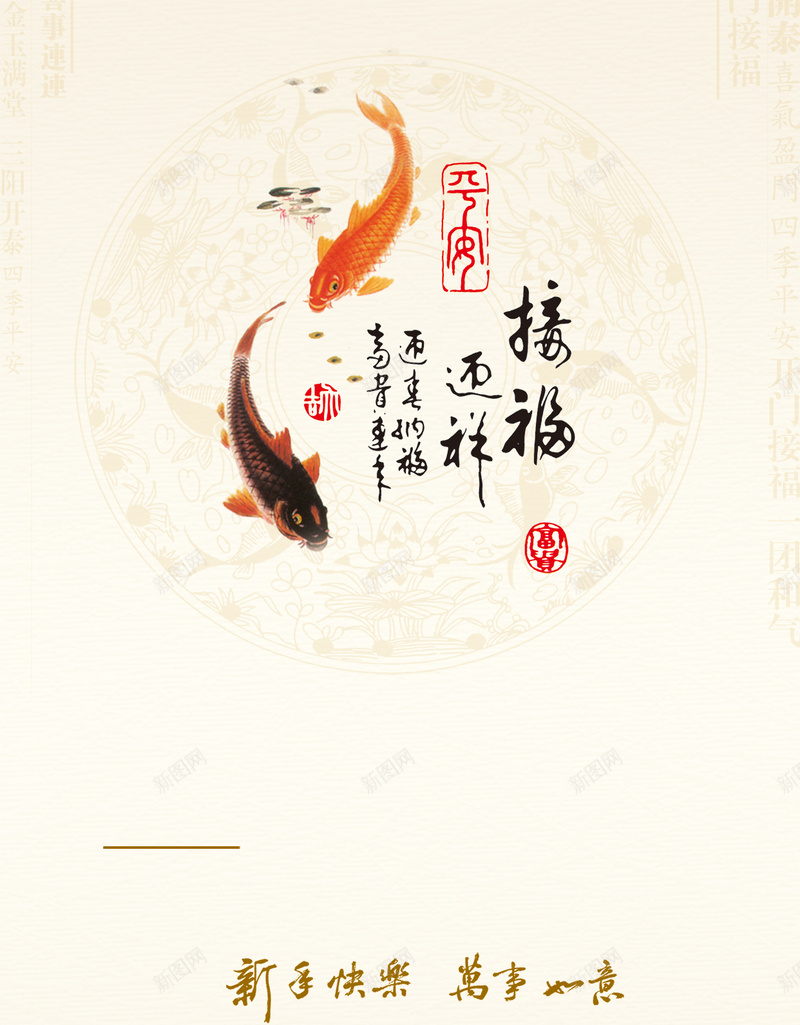 金玉满堂 三阳开泰 四季平安
喜事連連
門接福
開泰 喜氣盈門 四季平安 开门接福 一团和气
平安
接福
迎祥
迎春纳福
富貴連年
吉祥
富貴
新年快樂 萬事如意
新图网